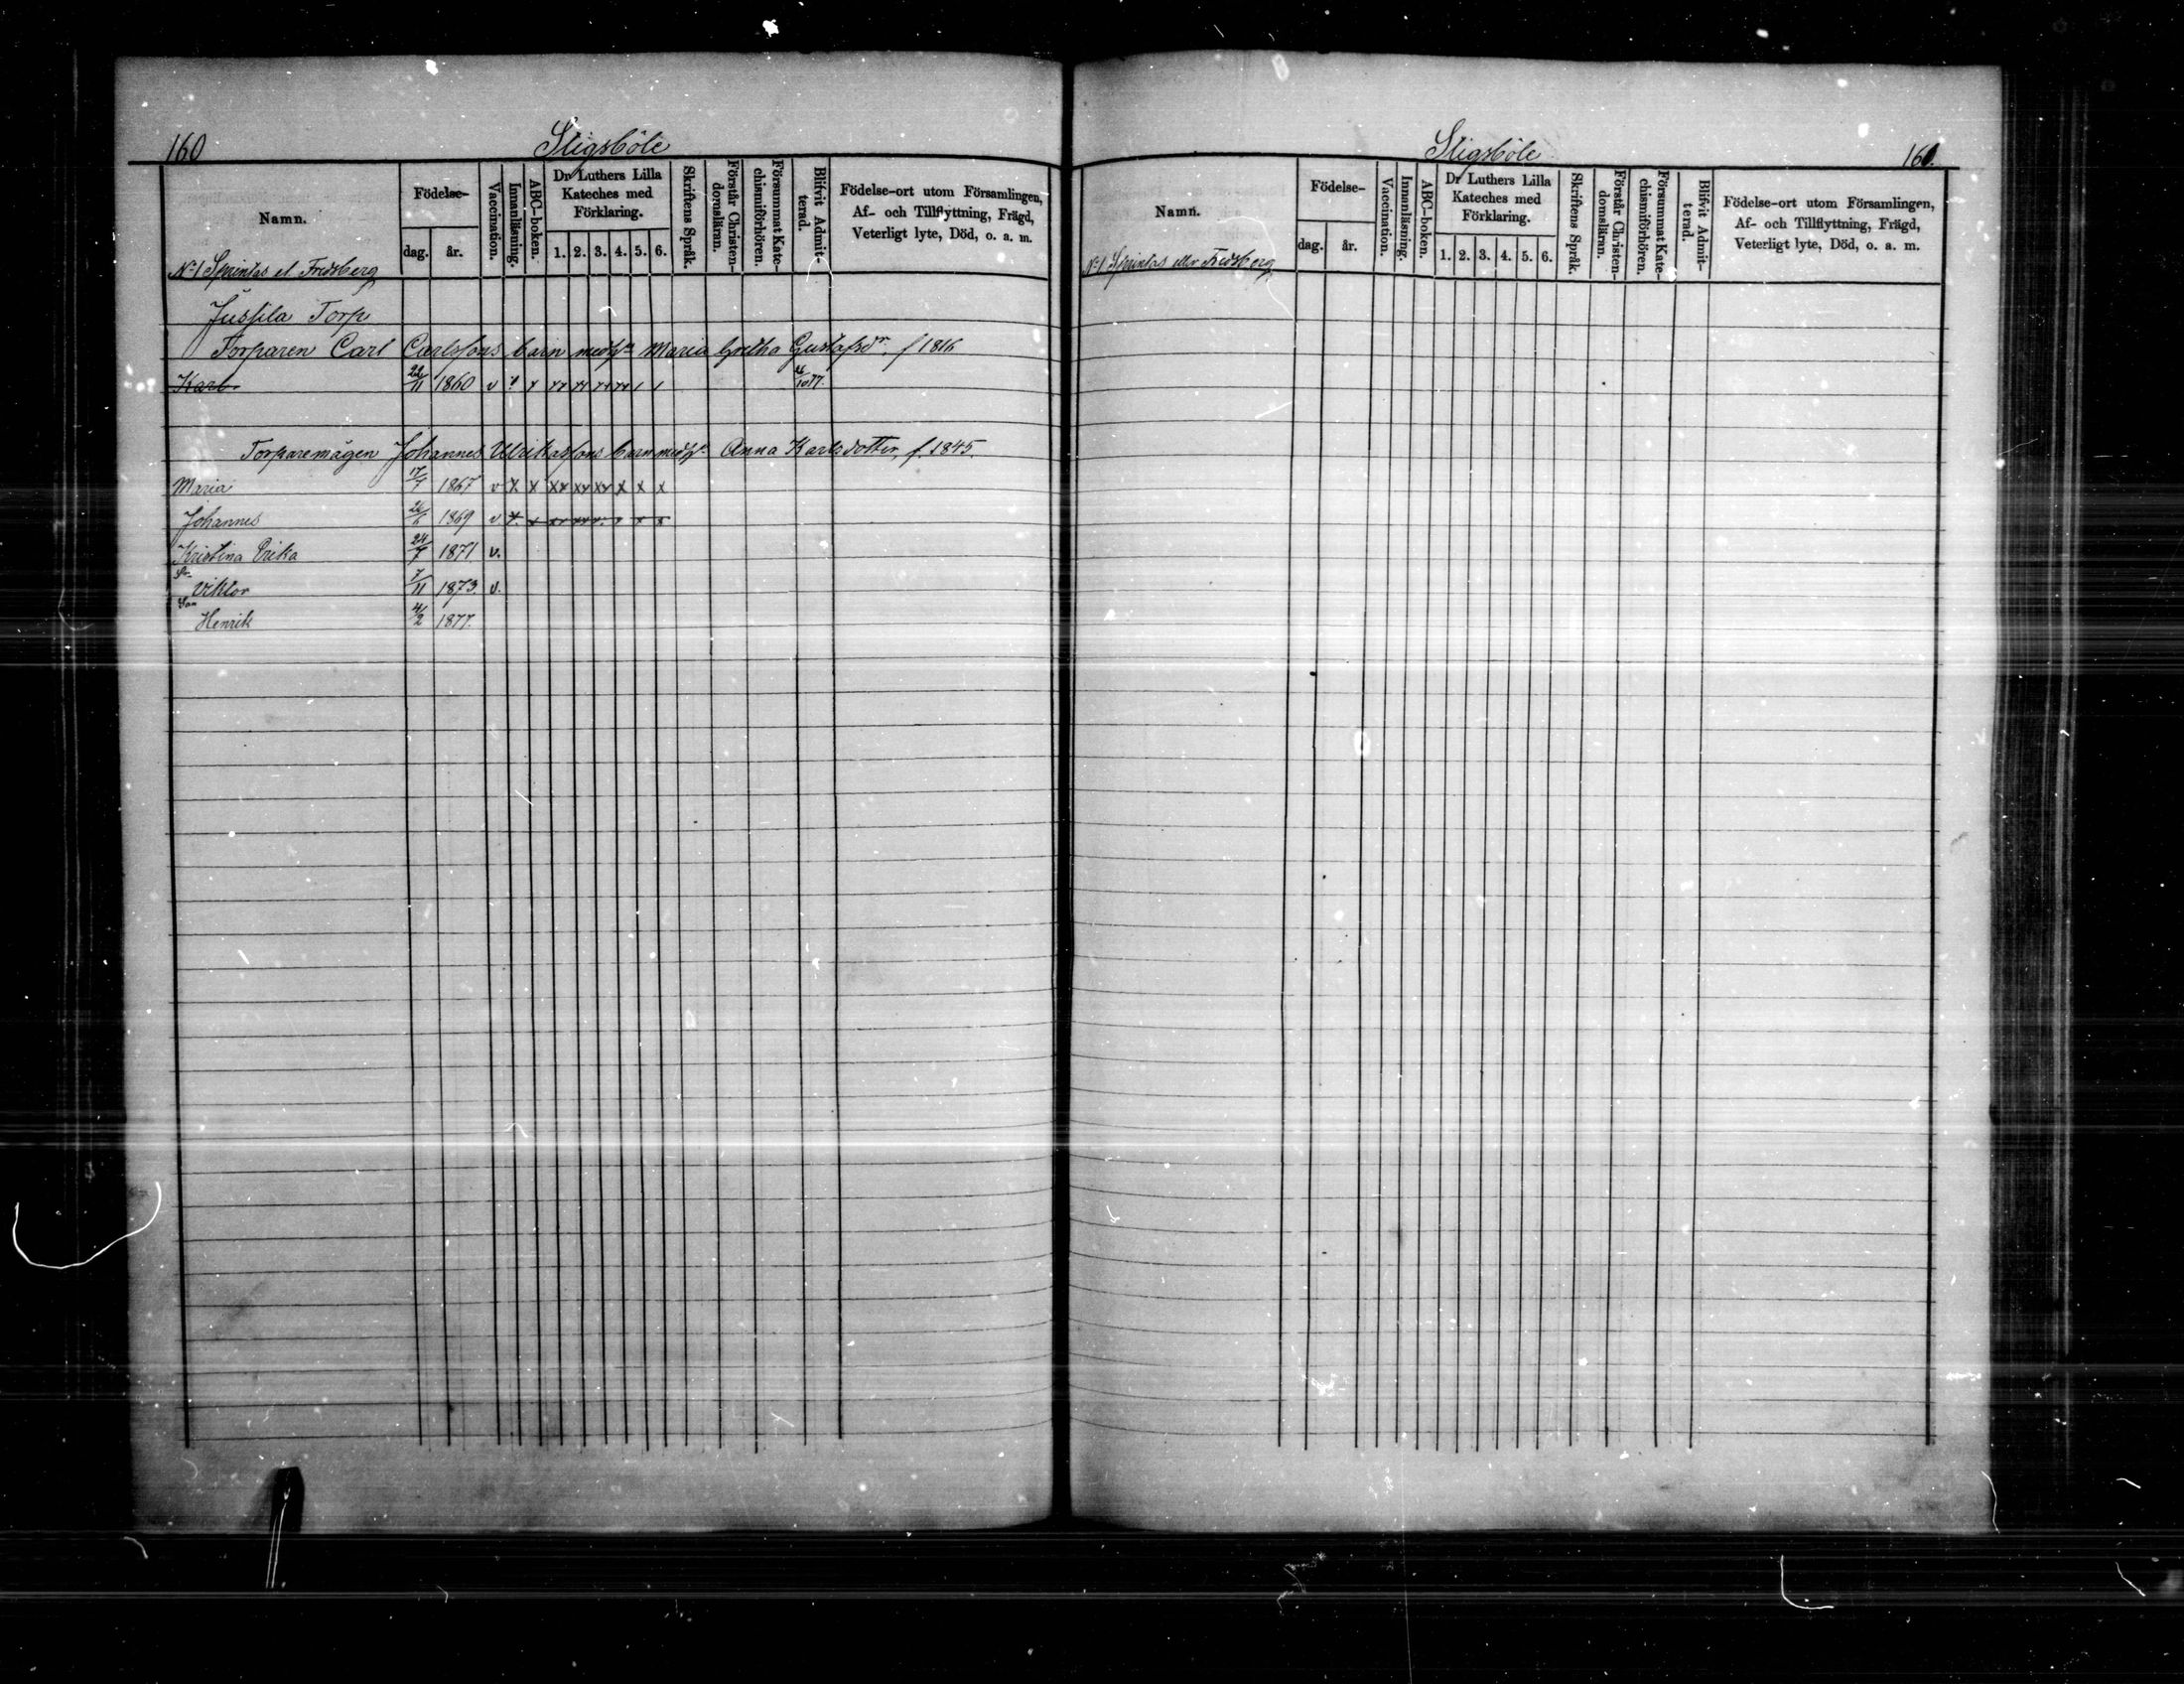 160 Stigsböle
Namn. Födelse- dag. år. Vaccination. Innanläsning. ABC-boken. Dr Luthers Lilla Kateches med Förklaring. 1. 2. 3. 4. 5. 6. Skriftens Språk. Förstår Christen-domsläran. Försummat Kate-chismiförhören. Blifvit Admit-terad. Födelse-ort utom Församlingen, Af- och Tillflyttning, Frägd, Veterligt lyte, Död, o. a. m.
No 1 Sprintas el. Fredsberg
Jussila Torp
Torparen Carl Carlssons barn med h. Maria Gretha Gustafsdr. f 1816
Karl 22/11 1860 v x x xx xx xx xx / / 77.
Torparemågen Johannes Ulrikassons barn med h. Anna Karlsdotter, f. 1845.
Maria 17/7 1867 v x x xx xx xx x x x
Johannes 26/6 1869 v. x x xx xx x. x x x
Kristina Erika 24/7 1871 v.
Sn. Viktor 7/11 1873. v.
Son Henrik 4/2 1877.
Stigsböle 160.
Namn. Födelse- dag. år. Vaccination. Innanläsning. ABC-boken. Dr Luthers Lilla Kateches med Förklaring. 1. 2. 3. 4. 5. 6. Skriftens Språk. Förstår Christen-domsläran. Försummat Kate-chismiförhören. Blifvit Admit-terad. Födelse-ort utom Församlingen, Af- och Tillflyttning, Frägd, Veterligt lyte, Död, o. a. m.
No 1 Sprintas eller Fredsberg